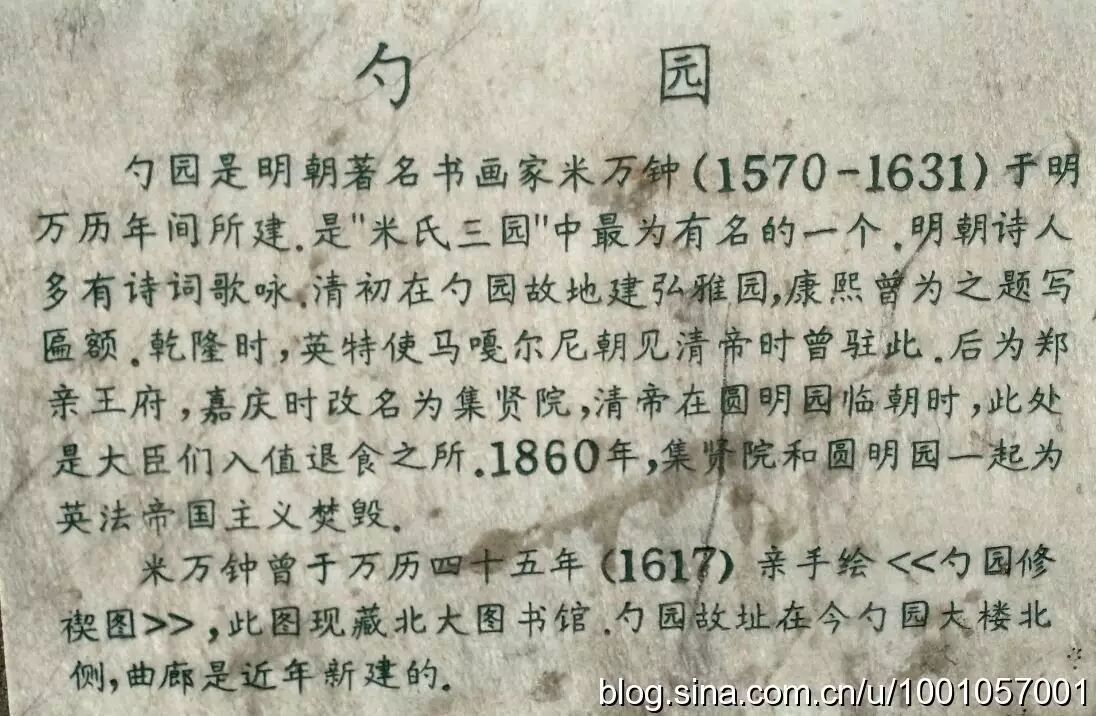 勺 园
勺园是明朝著名书画家米万钟(1570-1631)于明
万历年间所建.是"米氏三园"中最为有名的一个.明朝诗人
多有诗词歌咏.清初在勺园故地建弘雅园,康熙曾为之题写
匾额.乾隆时,英特使马嘎尔尼朝见清帝时曾驻此.后为郑
亲王府,嘉庆时改名为集贤院,清帝在圆明园临朝时,此处
是大臣们入值退食之所.1860年,集贤院和圆明园一起为
英法帝国主义焚毁.
米万钟曾于万历四十五年(1617)亲手绘<<勺园修
禊图>>,此图现藏北大图书馆.勺园故址在今勺园大楼北
侧,曲廊是近年新建的.
blog.sina.com.cn/u/1001057001